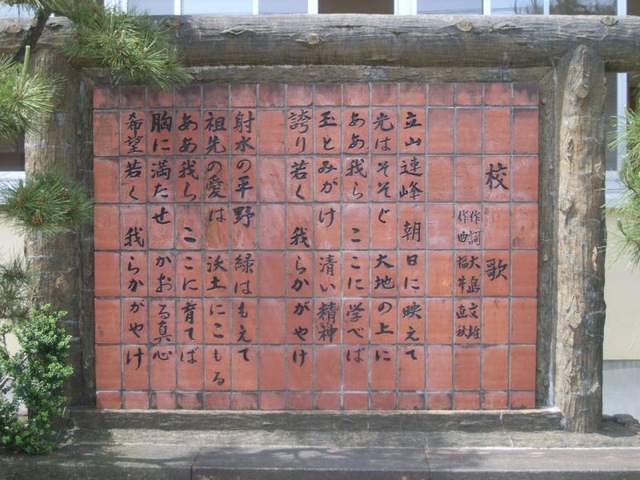 校歌
作詞 大島文雄
作曲 福井直秋
立山連峰 朝日に映えて
光はそそぐ 大地の上に
ああ我ら ここに学べば
玉とみがけ 清い精神
誇り若く 我らかがやけ
射水の平野 緑はもえて
祖先の愛は 沃土にこもる
ああ我ら ここに育てば
胸に満たせ かおる真心
希望若く 我らかがやけ